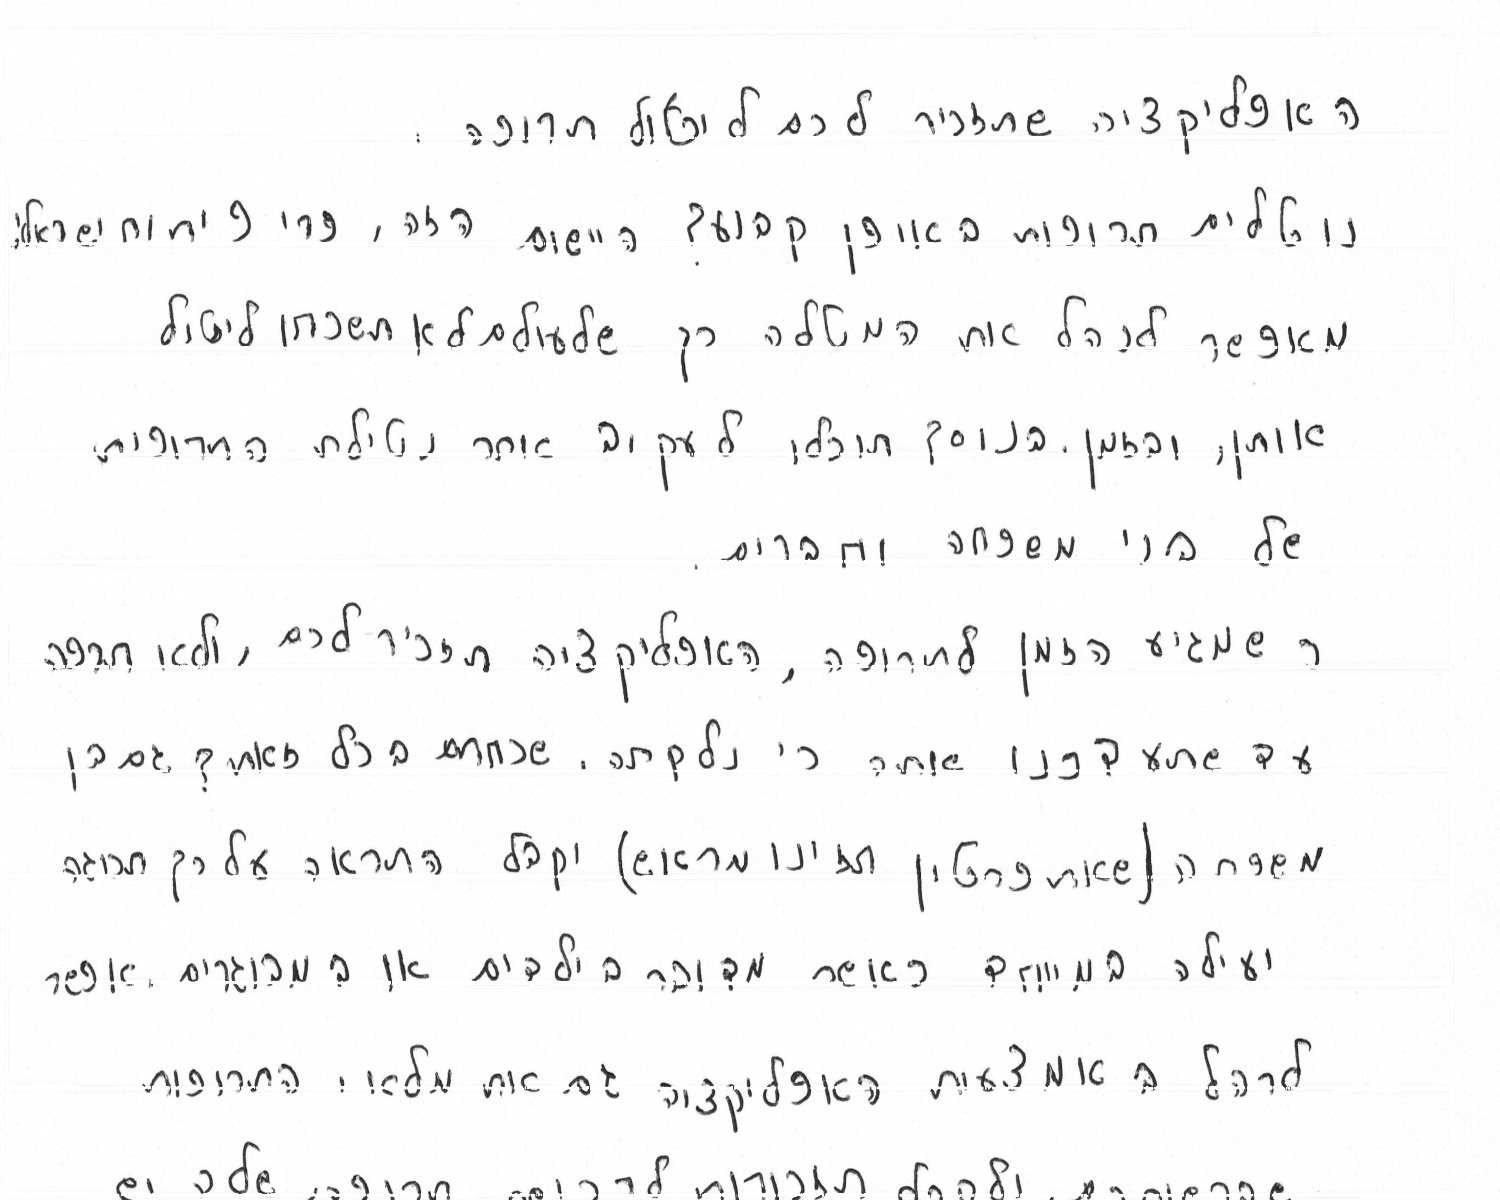 האפליקציה שתזכיר לכם ליטול תרופה.
נוטלים תרופות באופן קבוע? היישום הזה, פרי פיתוח ישראלי,
מאפשר לנהל את המטלה כך שלעולם לא תשכחו ליטול
אותן, ובזמן. בנוסף תוכלו לעקוב אחר נטילת התרופות
של בני משפחה וחברים.
כשמגיע הזמן לתרופה, האפליקציה תזכיר לכם, ולא תרפה
עד שתעדכנו אותה כי נלקחה. שכחתם בכל זאת? גם בן
משפחה (שאת פרטיו תזינו מראש) יקבל התראה על כך תכונה
יעילה במיוחד כאשר מדובר בילדים או במבוגרים. אפשר
לנהל באמצעות האפליקציה גם את מלאי התרופות
ולקבל תזכורות לרכישת תרופה של